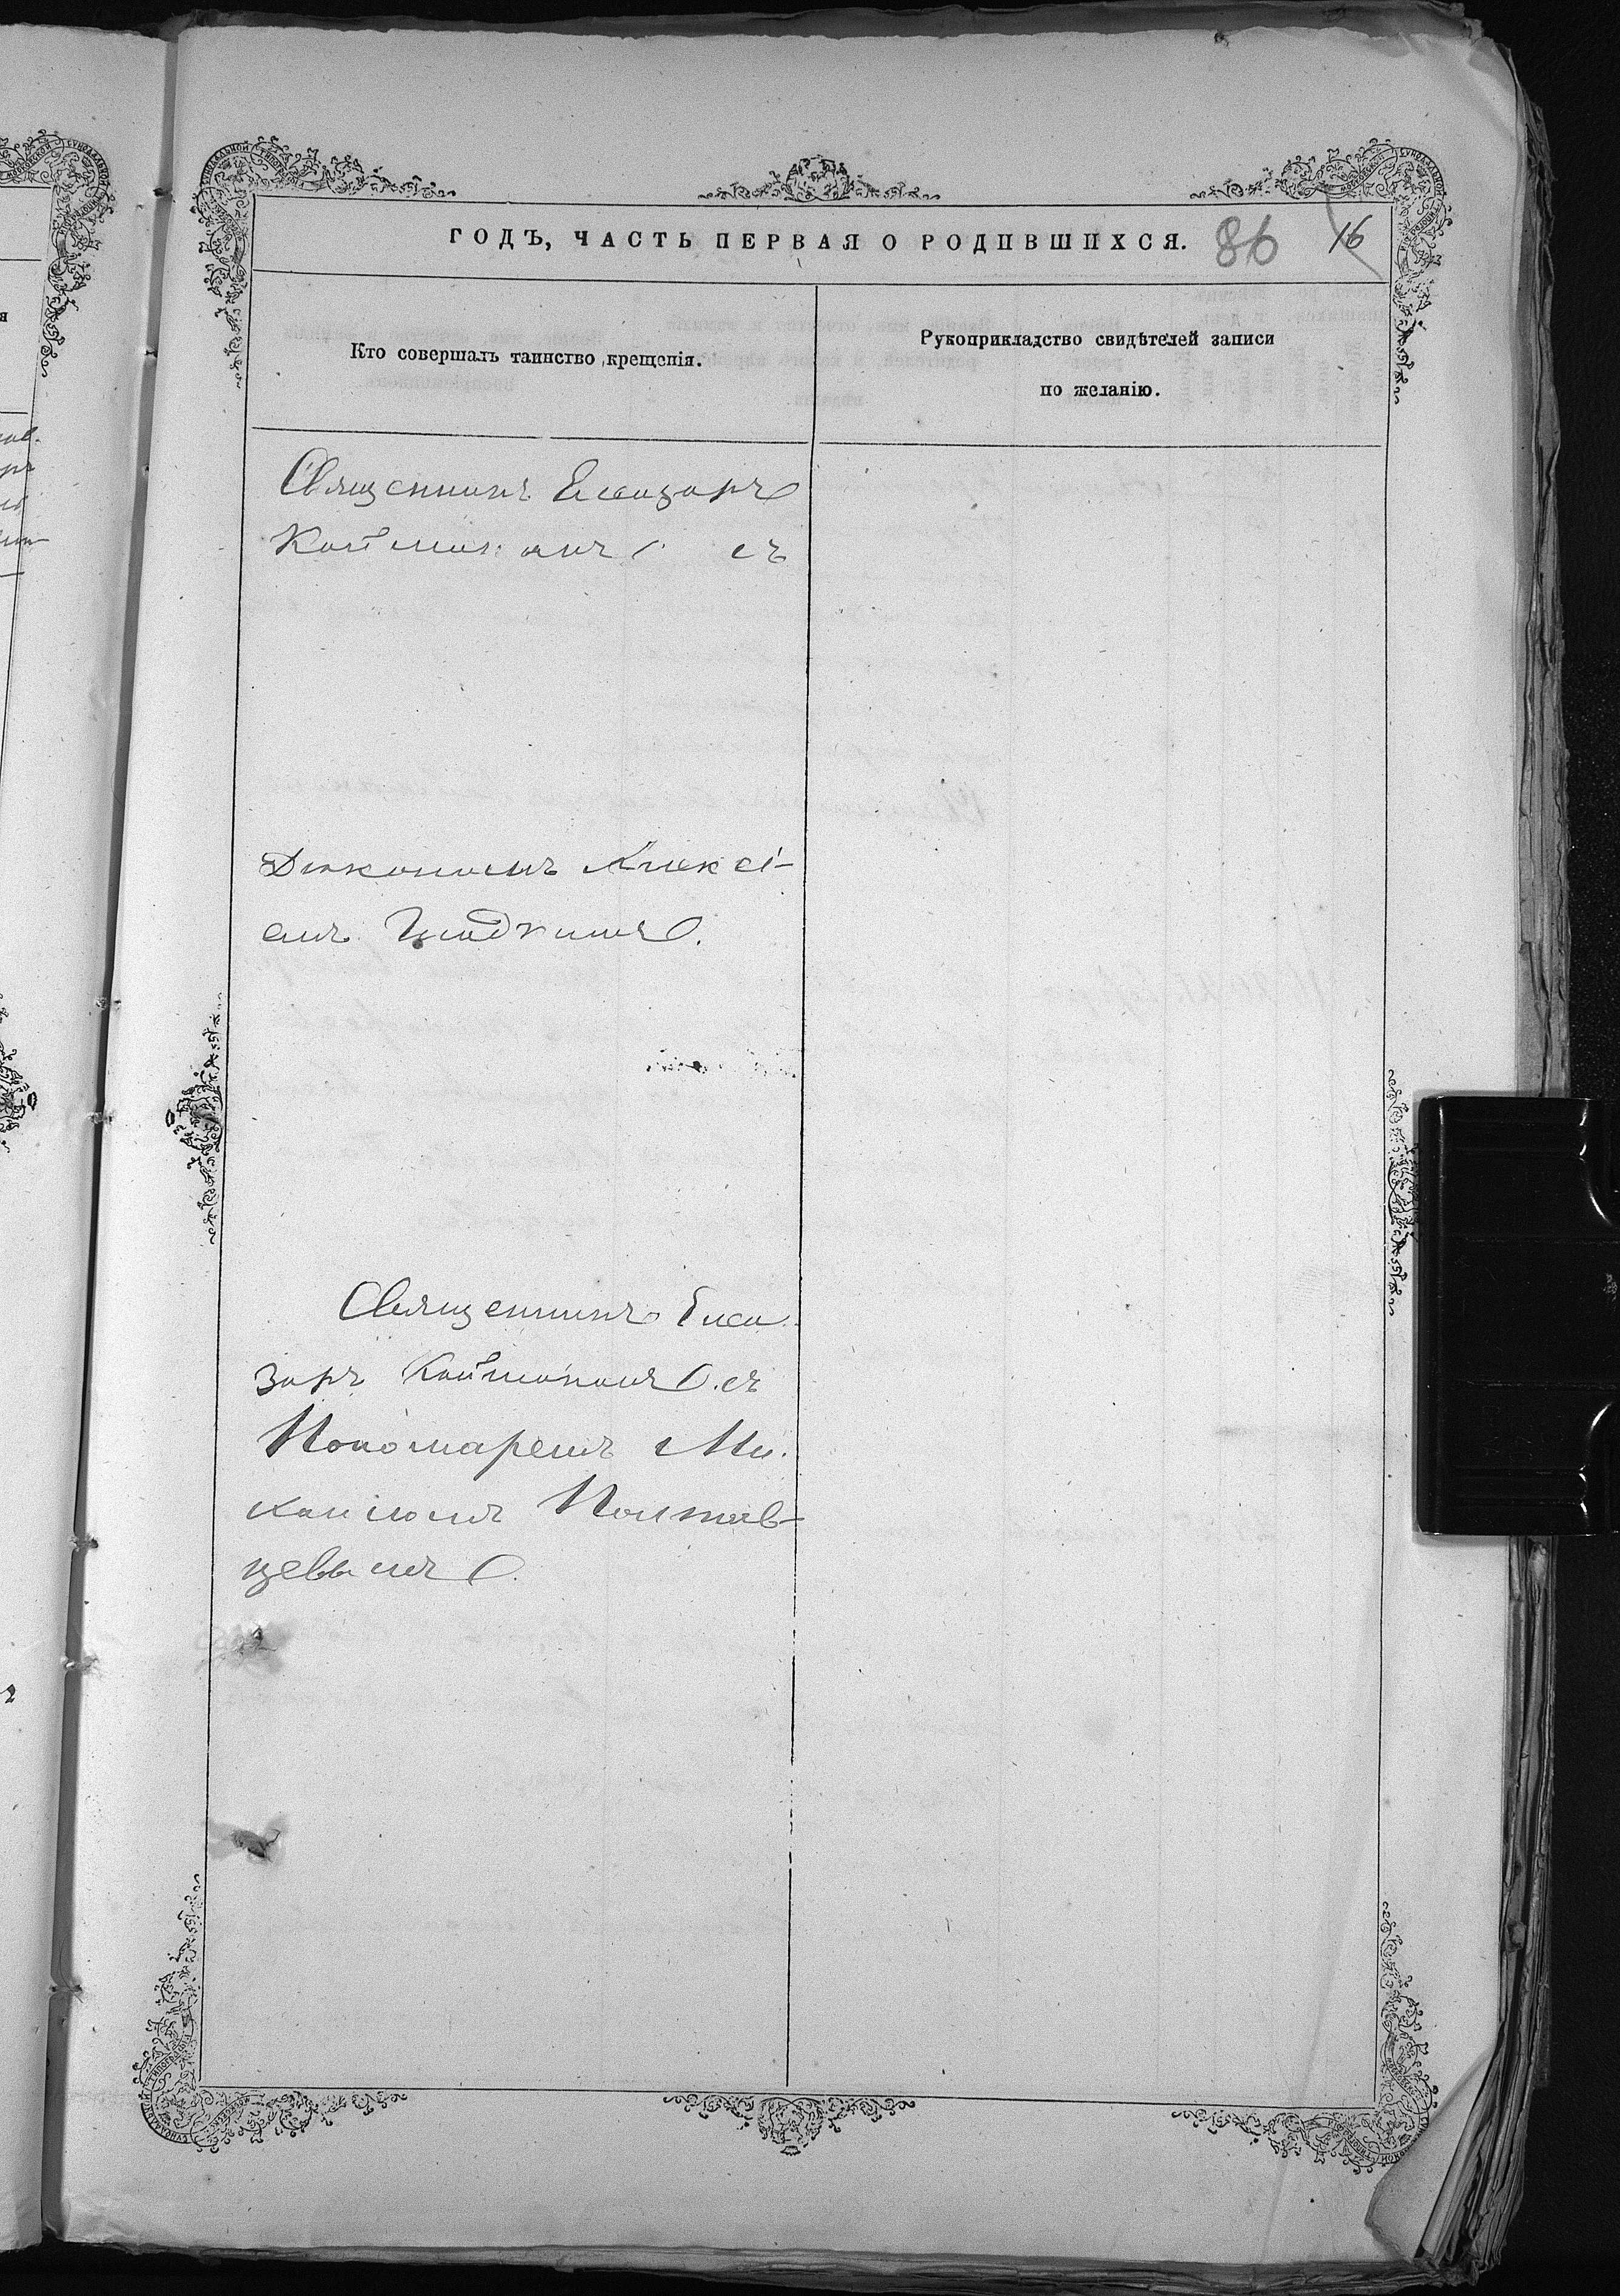 ГОДЪ, ЧАСТЬ ПЕРВАЯ О РОДИВШИХСЯ. 86 16
Кто совершалъ таинство крещенія.
Рукоприкладство свидѣтелей записи
по желанію.
Священникъ Елеазаръ
Каймакан съ
Діакономъ Алексі-
емъ
Священникъ Елеа-
заръ Каймакан съ
Пономаремъ Ми-
хаиломъ Полтав-
цевымъ